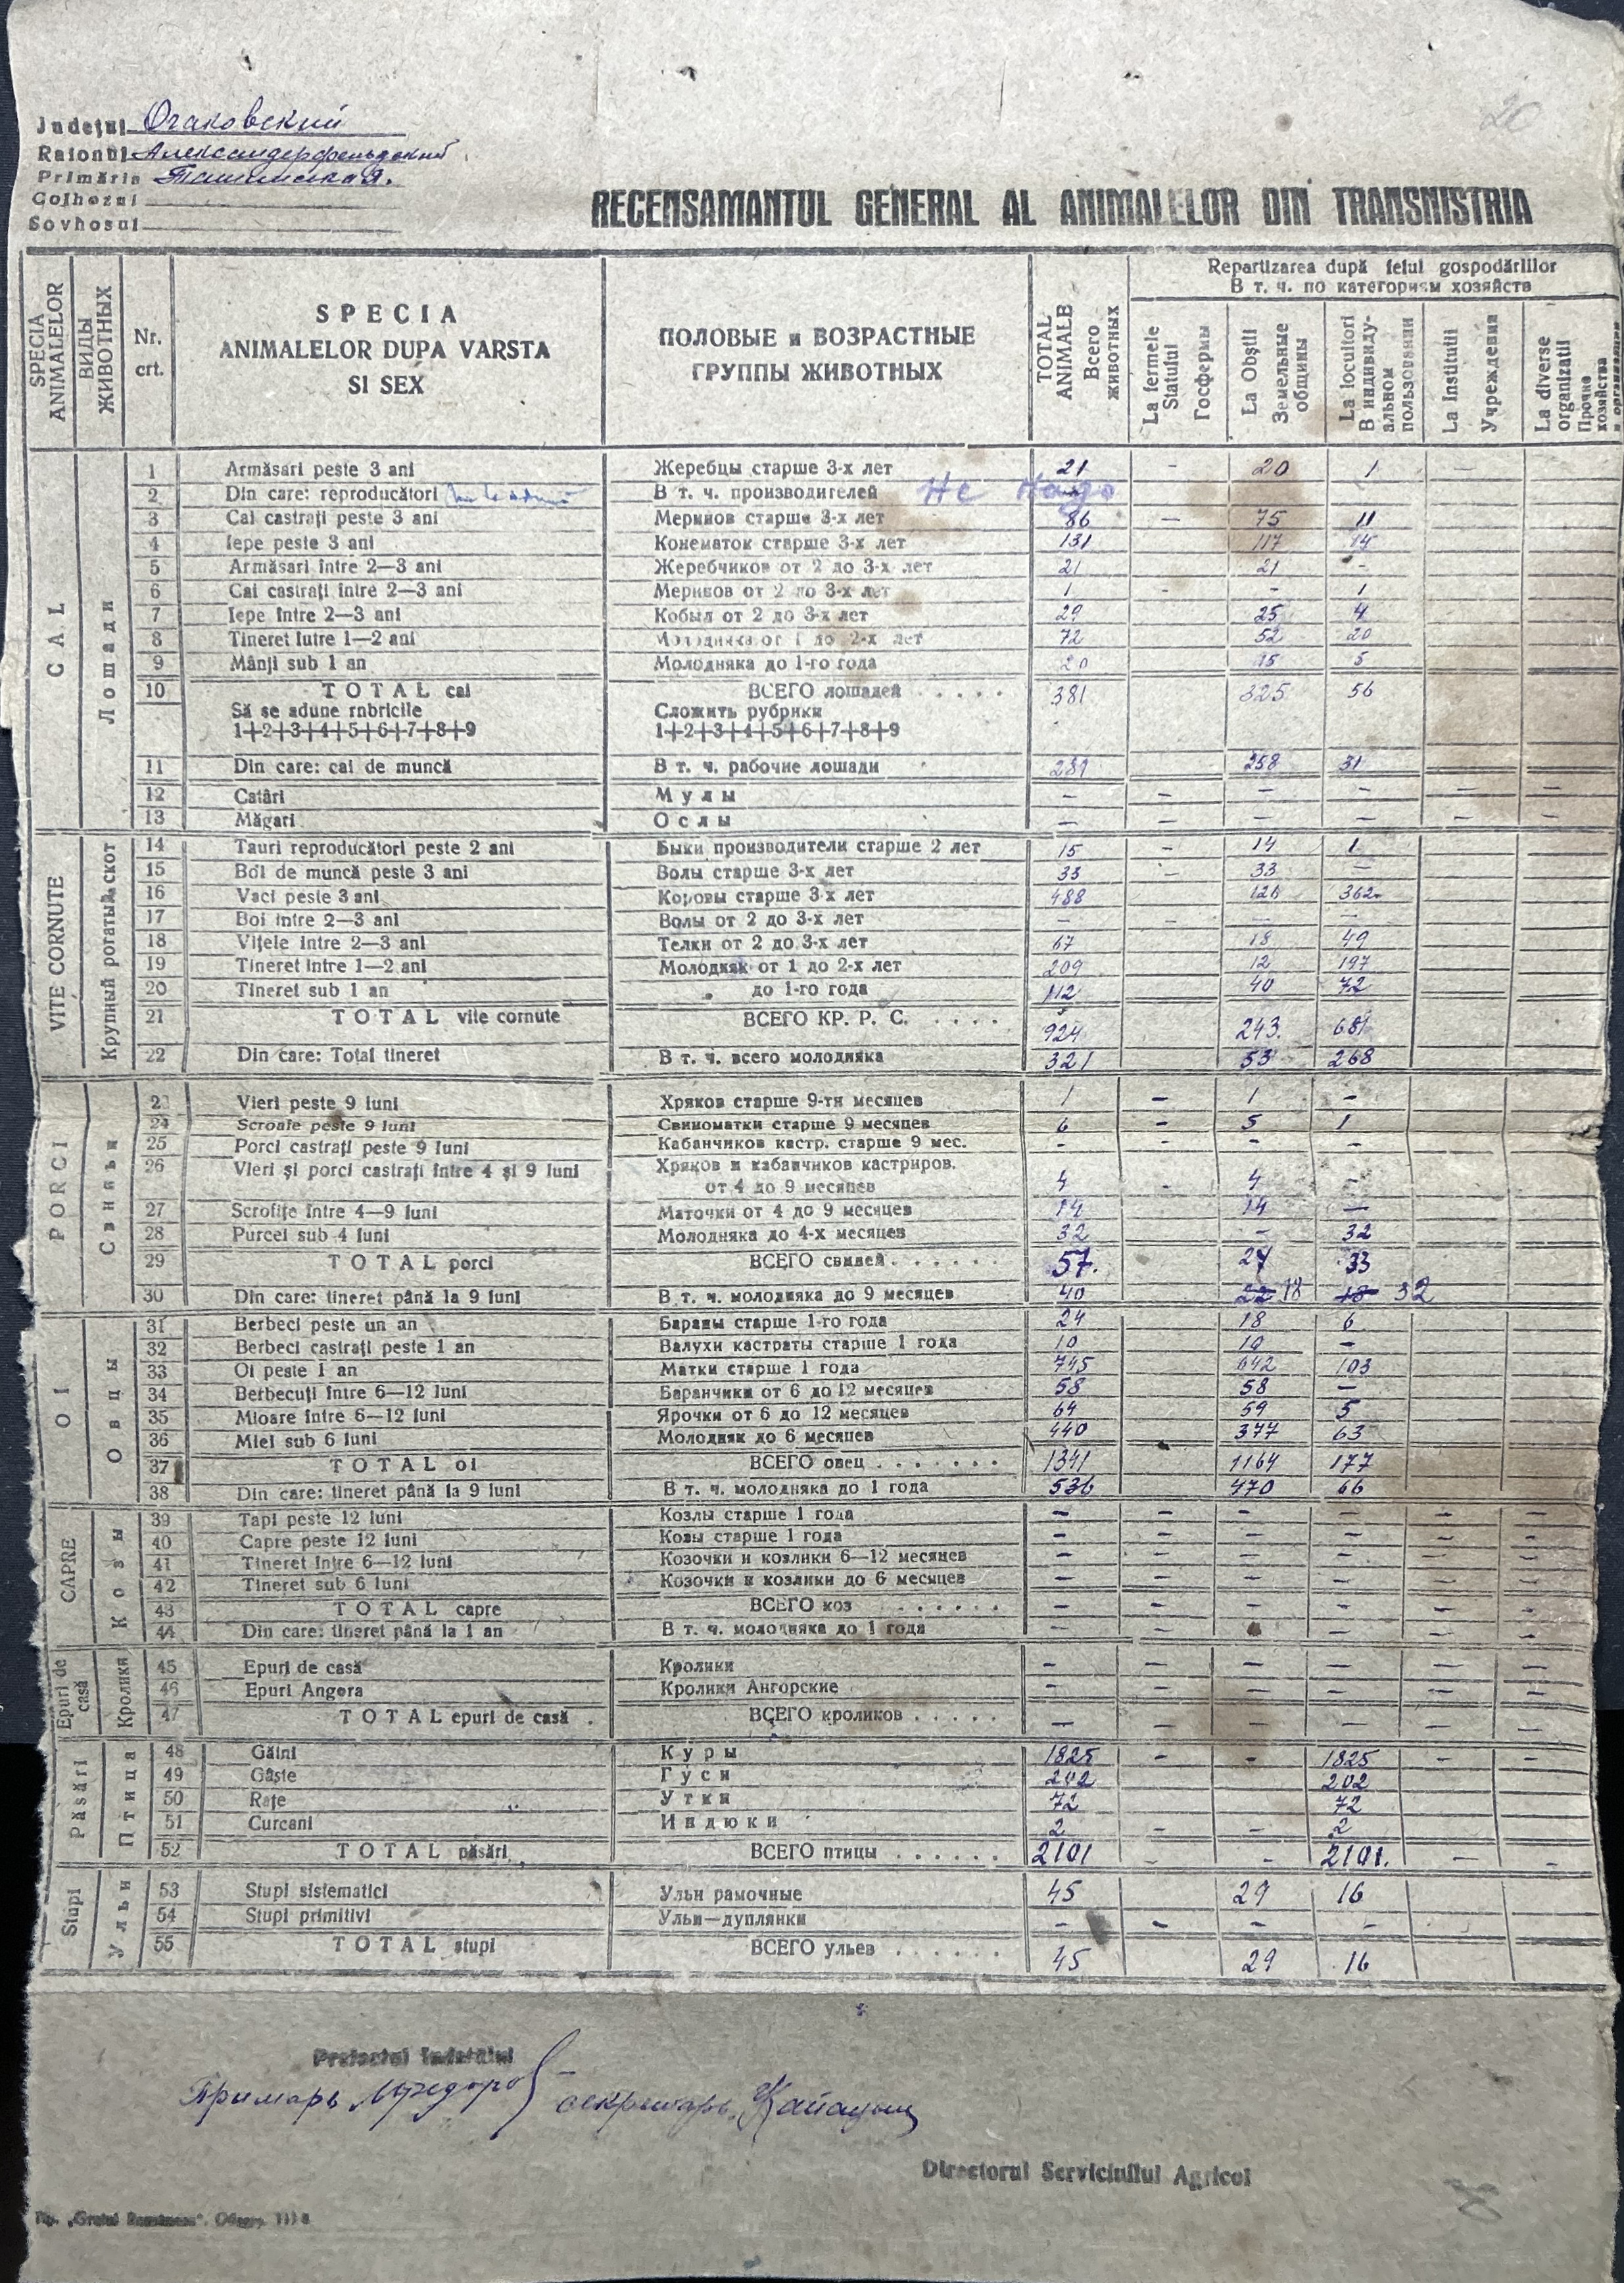 20
Județul Очаковский
Raionul Александерфельдский
Primăria Ташинская.
Colhozul
Sovhosul
RECENSAMANTUL GENERAL AL ANIMALELOR DIN TRANSNISTRIA
SPECIA ANIMALELOR ВИДЫ ЖИВОТНЫХ Nr. crt. SPECIA ANIMALELOR DUPA VARSTA SI SEX ПОЛОВЫЕ и ВОЗРАСТНЫЕ ГРУППЫ ЖИВОТНЫХ TOTAL ANIMALE Всего животных
Repartizarea după felul gospodăriilor
В т. ч. по категориям хозяйств
La fermele Statului Госфермы La Obștii Земельные общины La locuitori В индивидуальном пользовании La Institutii Учреждения La diverse organizatii Прочие хозяйства
CAL Лошади
1 Armăsari peste 3 ani Жеребцы старше 3-х лет 21 - 20 1 -
2 Din care: reproducători В т. ч. производителей Не надо
3 Cai castrați peste 3 ani Меринов старше 3-х лет 86 - 75 11
4 Iepe peste 3 ani Конематок старше 3-х лет 131 117 14
5 Armăsari intre 2—3 ani Жеребчиков от 2 до 3-х лет 21 21 -
6 Cai castrați intre 2—3 ani Меринов от 2 до 3-х лет 1 - - 1
7 Iepe intre 2—3 ani Кобыл от 2 до 3-х лет 29 25 4
8 Tineret Iutre 1—2 ani Молодняка от 1 до 2-х лет 72 52 20
9 Mânji sub 1 an Молодняка до 1-го года 20 15 5
10 TOTAL cai ВСЕГО лошадей . . . . . 381 325 56
Să se adune rnbricile Сложить рубрики
1+2+3+4+5+6+7+8+9 1+2+3+4+5+6+7+8+9
11 Din care: cai de muncă В т. ч. рабочие лошади 289 258 31
12 Catâri Мулы - - - - - -
13 Măgari Ослы - - - - - -
VITE CORNUTE Крупный рогатый скот
14 Tauri reproducători peste 2 ani Быки производители старше 2 лет 15 - 14 1
15 Boi de muncă peste 3 ani Волы старше 3-х лет 33 - 33 -
16 Vaci peste 3 ani Коровы старше 3-х лет 488 126 362
17 Boi intre 2—3 ani Волы от 2 до 3-х лет - - - -
18 Vițele intre 2—3 ani Телки от 2 до 3-х лет 67 18 49
19 Tineret intre 1—2 ani Молодняк от 1 до 2-х лет 209 12 197
20 Tineret sub 1 an до 1-го года 112 40 72
21 TOTAL vite cornute ВСЕГО КР. Р. С. . . . . 924 243. 681
22 Din care: Total tineret В т. ч. всего молодняка 321 53 268
PORCI Свиньи
23 Vieri peste 9 luni Хряков старше 9-ти месяцев 1 - 1 -
24 Scroaie peste 9 luni Свиноматки старше 9 месяцев 6 - 5 1
25 Porci castrați peste 9 luni Кабанчиков кастр. старше 9 мес. - - - -
26 Vieri și porci castrați intre 4 și 9 luni Хряков и кабанчиков кастриров.
от 4 до 9 месяцев 4 - 4 -
27 Scrofițe intre 4—9 luni Маточки от 4 до 9 месяцев 14 14 -
28 Purcei sub 4 luni Молодняка до 4-х месяцев 32 - 32
29 TOTAL porci ВСЕГО свиней . . . . . . 57. 24 33
30 Din care: tineret până la 9 luni В т. ч. молодняка до 9 месяцев 40 22 18 18 32
OI Овцы
31 Berbeci peste un an Бараны старше 1-го года 24 18 6
32 Berbeci castrați peste 1 an Валухи кастраты старше 1 года 10 10 -
33 Oi peste 1 an Матки старше 1 года 745 642 103
34 Berbecuți intre 6—12 luni Баранчики от 6 до 12 месяцев 58 58 -
35 Mioare intre 6—12 luni Ярочки от 6 до 12 месяцев 64 59 5
36 Miei sub 6 luni Молодняк до 6 месяцев 440 377 63
37 TOTAL oi ВСЕГО овец . . . . . . . 1341 1164 177
38 Din care: tineret până la 9 luni В т. ч. молодняка до 1 года 536 470 66
CAPRE Козы
39 Tapi peste 12 luni Козлы старше 1 года - - - - - -
40 Capre peste 12 luni Козы старше 1 года - - - - - -
41 Tineret intre 6—12 luni Козочки и козлики 6—12 месяцев - - - - - -
42 Tineret sub 6 luni Козочки и козлики до 6 месяцев - - - - - -
43 TOTAL capre ВСЕГО коз . . . . . . - - - - - -
44 Din care: tineret până la 1 an В т. ч. молодняка до 1 года - - - - -
Epuri de casă Кролики
45 Epuri de casă Кролики - - - - - -
46 Epuri Angora Кролики Ангорские - - - - - -
47 TOTAL epuri de casă . ВСЕГО кроликов . . . . . - - - - - -
Păsări Птица
48 Găini Куры 1825 - - 1825 - -
49 Gâște Гуси 202 202
50 Rațe Утки 72 72
51 Curcani Индюки 2 - - 2
52 TOTAL păsări ВСЕГО птицы . . . . . . 2101 - - 2101. - -
Stupi Ульи
53 Stupi sistematici Ульи рамочные 45 29 16
54 Stupi primitivi Ульи—дуплянки - - - -
55 TOTAL stupi ВСЕГО ульев . . . . . . 45 29 16
Prefectul Județului
Примарь секретарь
Directorul Serviciului Agricol